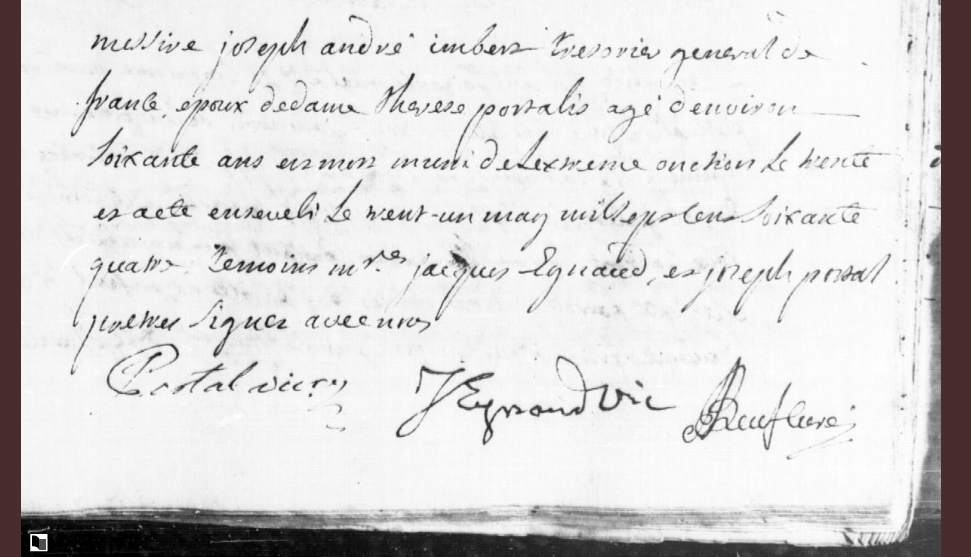 messire joseph andré imbert tresorier general de
france, epoux de dame therese portalis agé denviron
soixante ans est mort muni de Lextreme onction le trente
et a eté enseveli Le trent-un may mil sept cens soixante
quatre temoins mrs jacques Eynaud, et joseph portal
pretres signez avec nous
Portal vicre
J Eynaud Vic
curé